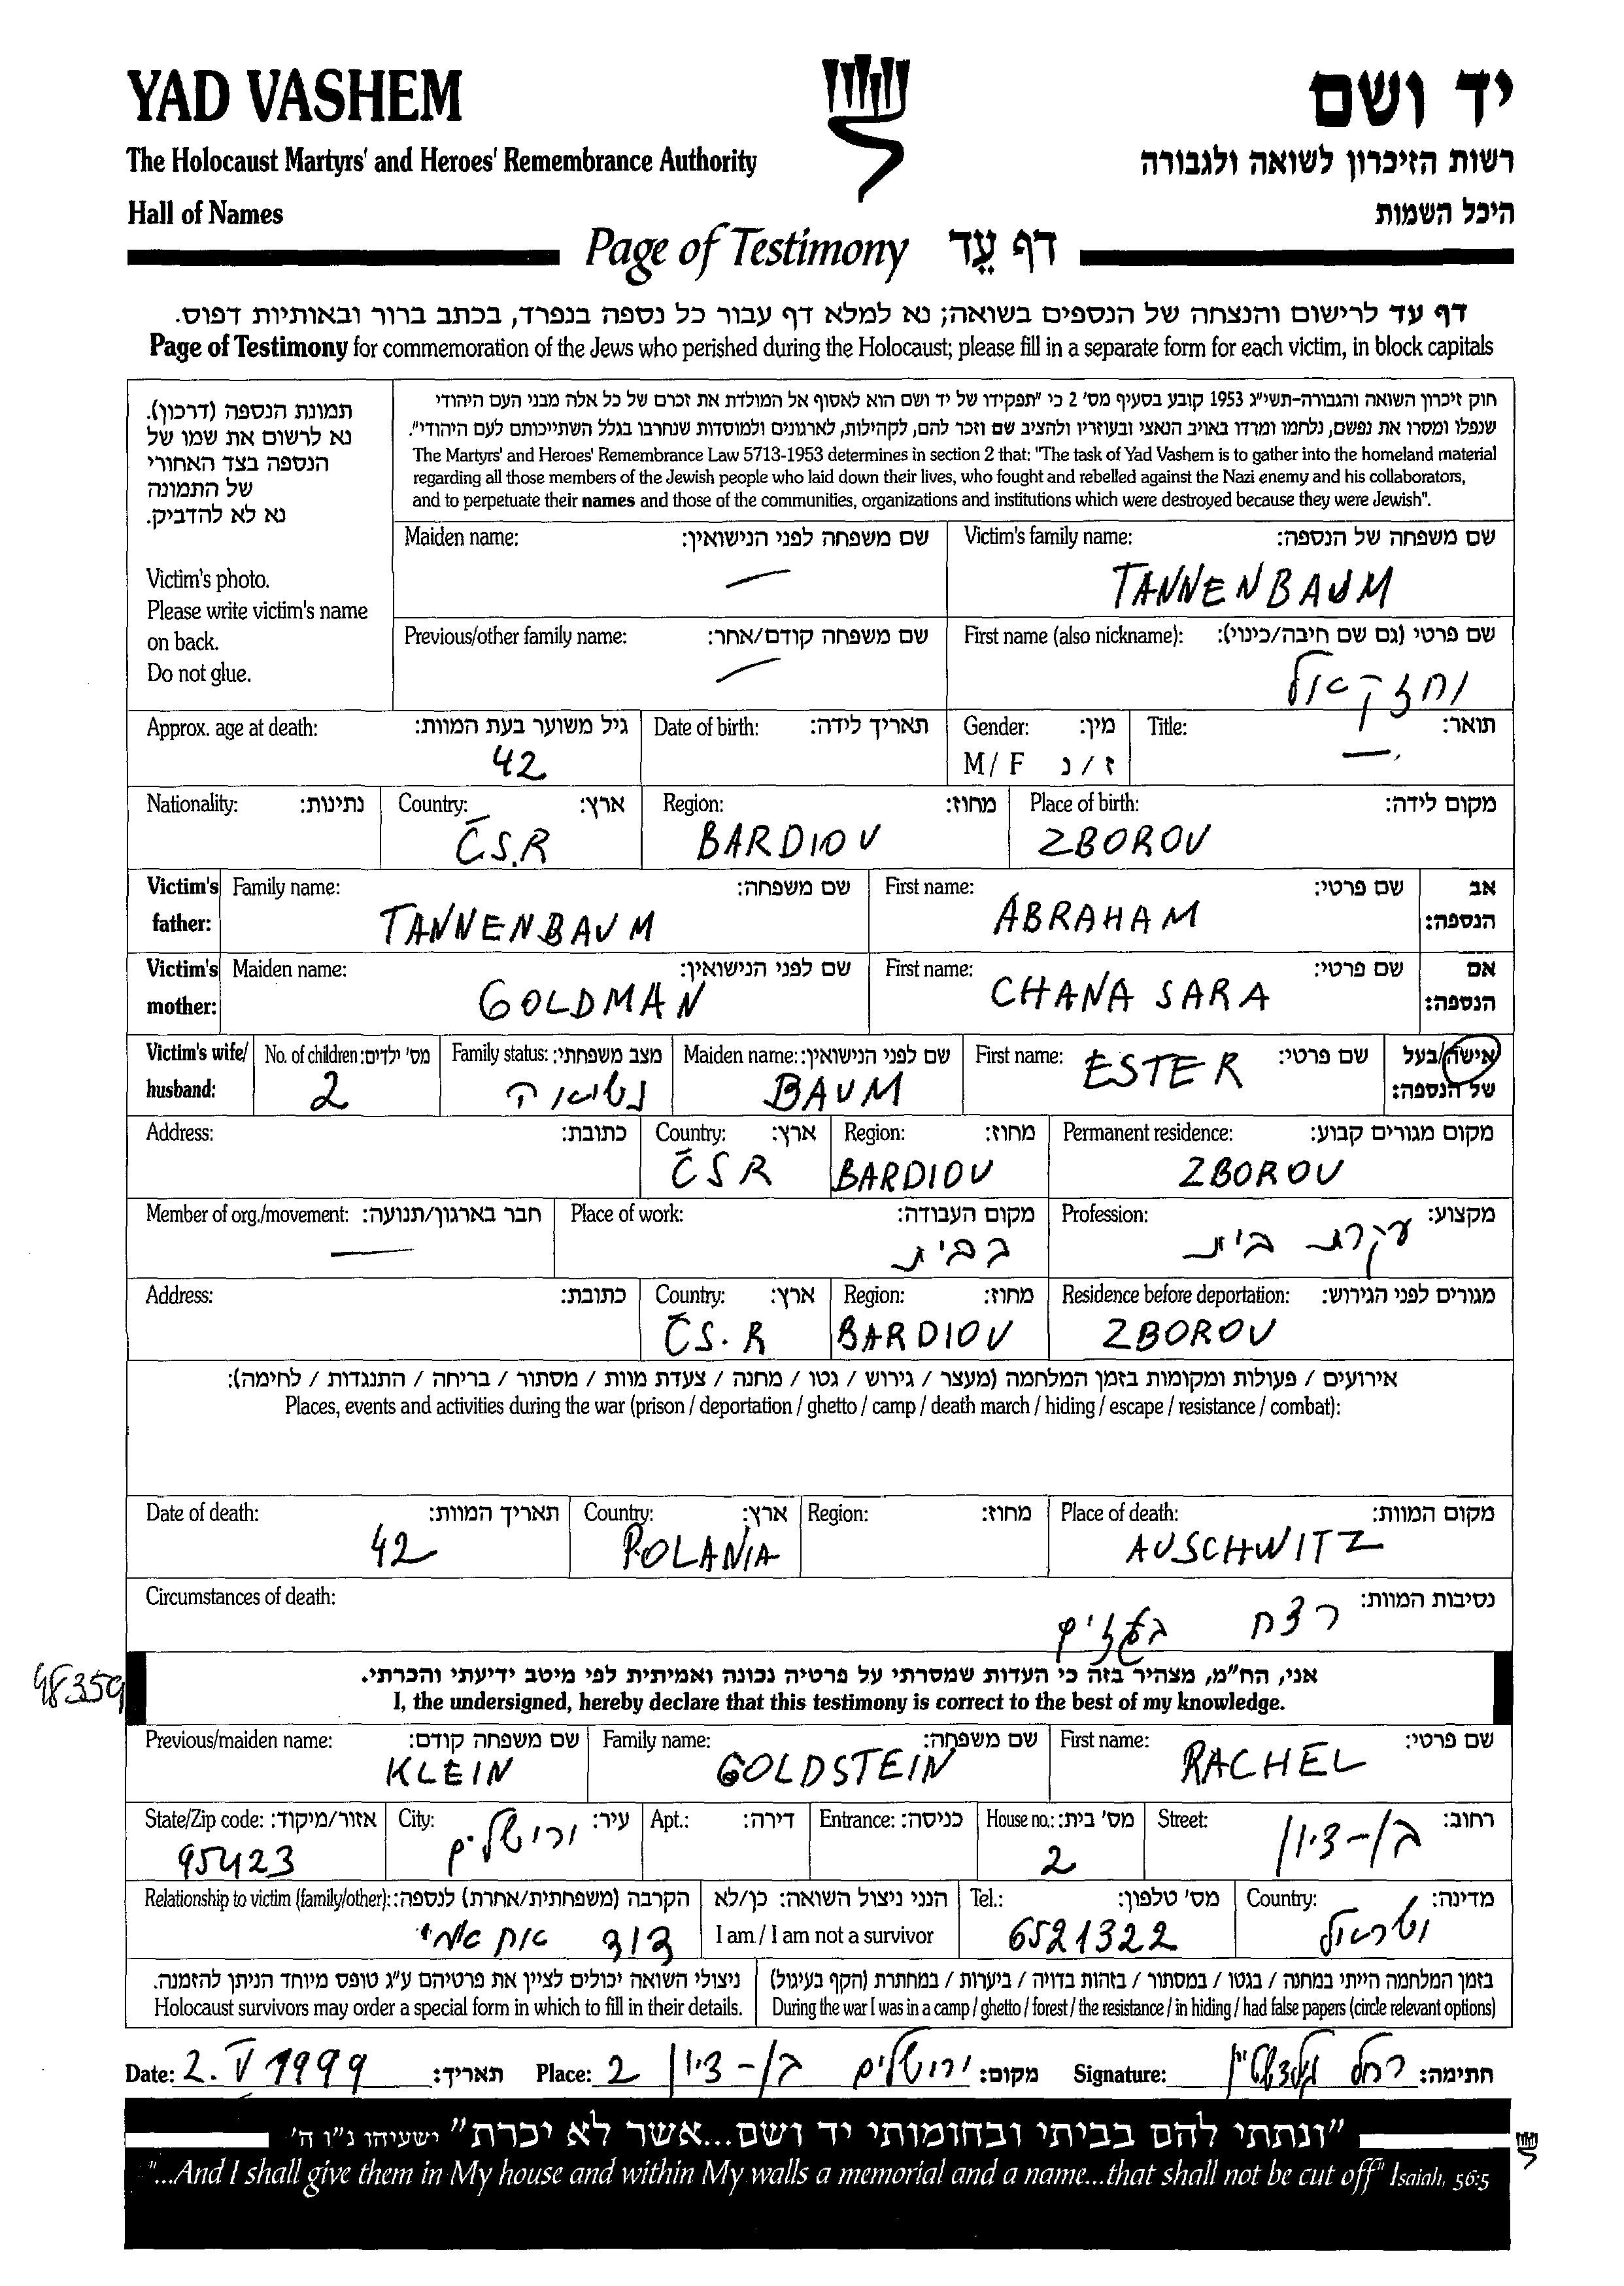 YAD VASHEM יד ושם
The Holocaust Martyrs' and Heroes' Remembrance Authority רשות הזיכרון לשואה ולגבורה
Hall of Names היכל השמות
Page of Testimony דף עֵד
דף עד לרישום והנצחה של הנספים בשואה; נא למלא דף עבור כל נספה בנפרד, בכתב ברור ובאותיות דפוס.
Page of Testimony for commemoration of the Jews who perished during the Holocaust; please fill in a separate form for each victim, in block capitals
תמונת הנספה (דרכון).
נא לרשום את שמו של
הנספה בצד האחורי
של התמונה
נא לא להדביק.
Victim's photo.
Please write victim's name
on back.
Do not glue.
חוק זיכרון השואה והגבורה-תשי"ג 1953 קובע בסעיף מס' 2 כי "תפקידו של יד ושם הוא לאסוף אל המולדת את זכרם של כל אלה מבני העם היהודי
שנפלו ומסרו את נפשם, נלחמו ומרדו באויב הנאצי ובעוזריו ולהציב שם וזכר להם, לקהילות, לארגונים ולמוסדות שנחרבו בגלל השתייכותם לעם היהודי".
The Martyrs' and Heroes' Remembrance Law 5713-1953 determines in section 2 that: "The task of Yad Vashem is to gather into the homeland material
regarding all those members of the Jewish people who laid down their lives, who fought and rebelled against the Nazi enemy and his collaborators,
and to perpetuate their names and those of the communities, organizations and institutions which were destroyed because they were Jewish".
Maiden name: שם משפחה לפני הנישואין: Victim's family name: שם משפחה של הנספה:
— TANNENBAUM
Previous/other family name: שם משפחה קודם/אחר: First name (also nickname): שם פרטי (גם שם חיבה/כינוי):
— יחזקאל
Approx. age at death: גיל משוער בעת המוות: Date of birth: תאריך לידה: Gender: מין: Title: תואר:
42 M/F ז/נ —
Nationality: נתינות: Country: ארץ: Region: מחוז: Place of birth: מקום לידה:
ČS.R BARDIOV ZBOROV
Victim's father: Family name: שם משפחה: First name: שם פרטי: אב הנספה:
TANNENBAUM ABRAHAM
Victim's mother: Maiden name: שם לפני הנישואין: First name: שם פרטי: אם הנספה:
GOLDMAN CHANA SARA
Victim's wife/ husband: No. of children: מס' ילדים: Family status: מצב משפחתי: Maiden name: שם לפני הנישואין: First name: שם פרטי: אישה/בעל של הנספה:
2 נשואה BAUM ESTER
Address: כתובת: Country: ארץ: Region: מחוז: Permanent residence: מקום מגורים קבוע:
ČSR BARDIOV ZBOROV
Member of org./movement: חבר בארגון/תנועה: Place of work: מקום העבודה: Profession: מקצוע:
— בבית עקרת בית
Address: כתובת: Country: ארץ: Region: מחוז: Residence before deportation: מגורים לפני הגירוש:
ČS.R BARDIOV ZBOROV
אירועים / פעולות ומקומות בזמן המלחמה (מעצר / גירוש / גטו / מחנה / צעדת מוות / מסתור / בריחה / התנגדות / לחימה):
Places, events and activities during the war (prison / deportation / ghetto / camp / death march / hiding / escape / resistance / combat):
Date of death: תאריך המוות: Country: ארץ: Region: מחוז: Place of death: מקום המוות:
42 POLANIA AUSCHWITZ
Circumstances of death: נסיבות המוות:
רצח
48359
אני, הח"מ, מצהיר בזה כי העדות שמסרתי על פרטיה נכונה ואמיתית לפי מיטב ידיעתי והכרתי.
I, the undersigned, hereby declare that this testimony is correct to the best of my knowledge.
Previous/maiden name: שם משפחה קודם: Family name: שם משפחה: First name: שם פרטי:
KLEIN GOLDSTEIN RACHEL
State/Zip code: אזור/מיקוד: City: עיר: Apt.: דירה: Entrance: כניסה: House no.: מס' בית: Street: רחוב:
95423 ירושלים 2 בן-ציון
Relationship to victim (family/other): הקרבה (משפחתית/אחרת) לנספה: הנני ניצול השואה: כן/לא Tel.: מס' טלפון: Country: מדינה:
דוד אח אמי I am / I am not a survivor 6521322 ישראל
ניצולי השואה יכולים לציין את פרטיהם ע"ג טופס מיוחד הניתן להזמנה. בזמן המלחמה הייתי במחנה / בגטו / במסתור / בזהות בדויה / ביערות / במחתרת (הקף בעיגול)
Holocaust survivors may order a special form in which to fill in their details. During the war I was in a camp / ghetto / forest / the resistance / in hiding / had false papers (circle relevant options)
Date: 2. V 1999 תאריך: Place: ירושלים בן-ציון 2 מקום: Signature: רחל גולדשטיין חתימה:
"ונתתי להם בביתי ובחומותי יד ושם...אשר לא יכרת" ישעיהו נ"ו ה'
"...And I shall give them in My house and within My walls a memorial and a name...that shall not be cut off" Isaiah, 56:5